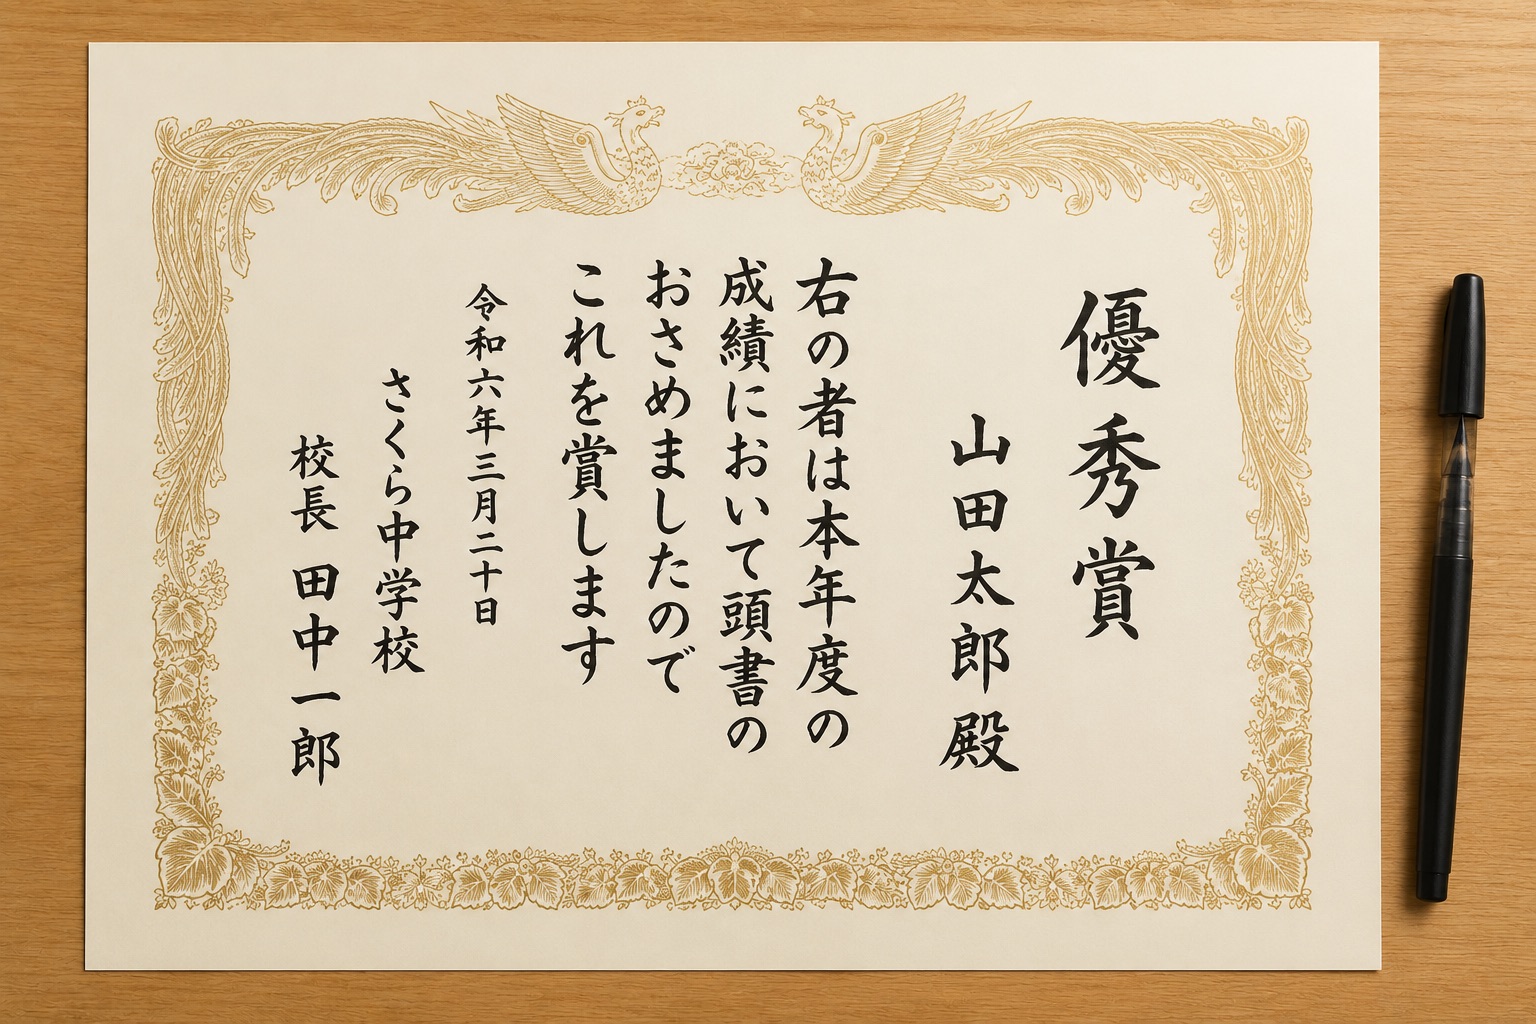 優秀賞
山田太郎殿
右の者は本年度の
成績において頭書の
おさめましたので
これを賞します
令和六年三月二十日
さくら中学校
校長 田中一郎